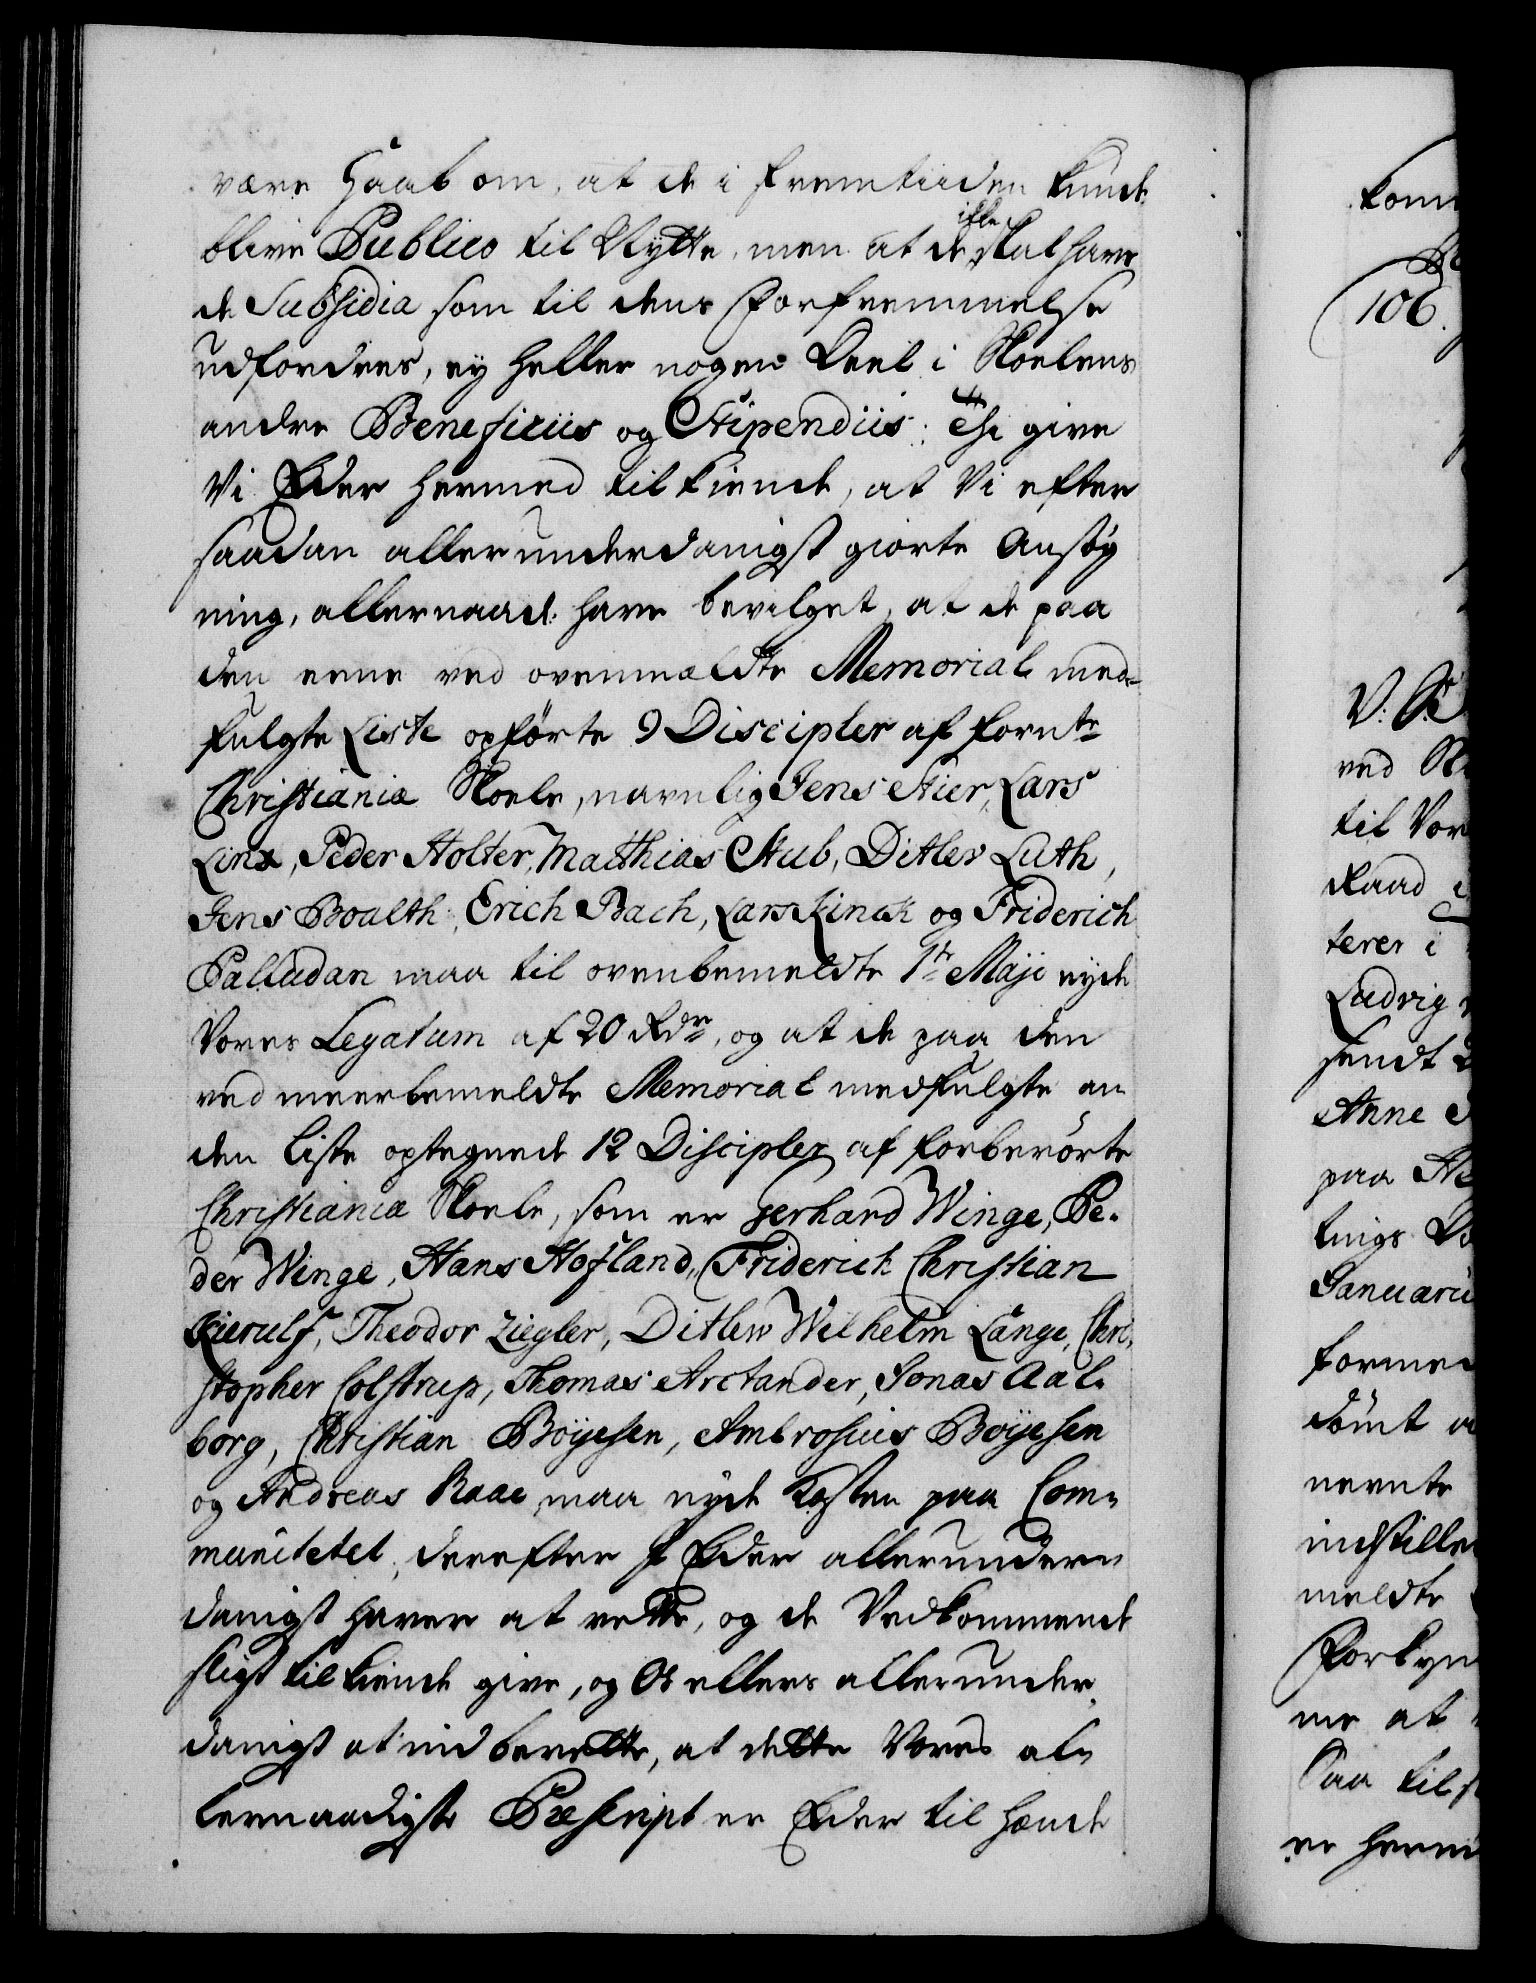 være Haab om, at de i fremtiiden kunde
blive Publico til Nytte, men at de ikke skal have
de Subsidia som til deres Forfremmelse
udfordres, ey heller nogen Deel i Skoelens
andre Beneficiis og Stipendiis: Thi give
Vi Eder hermed tilkiende, at Vi efter
saadan allerunderdanigst giorte Ansøg
ning, allernaad: have bevilget, at de paa
den eene ved ovenmældte Memorial med-
fulgte Liste opførte 9 Discipler af fornte
Christianiæ Skoele, navnlig Jens Stier, Lars
Linx, Peder Holter, Matthias Stub, Ditlev Luth,
Jens Boalth, Erich Bach, Lars Kinck og Friderich
Palludan maa til ovenbemeldte 1te Maji nyde
Vores Legatum af 20 Rdr, og at de paa den
ved meerbemeldte Memorial medfulgte an
den Liste optegnede 12 Discipler af forberørte
Christiania Skoele, som er Gerhard Winge, Pe-
der Winge, Hans Hofland, Friderich Christian
Kierulf, Theodor Ziegler, Ditlew Wilhelm Lange, Chri-
stopher Colstrup, Thomas Arctander, Jonas Aal-
borg, Christian Boyesen, Ambrosius Boyesen
og Andreas Raae, maa nyde Kosten paa Com-
munitetet; derefter I Eder allerunder-
danigst haver at rette, og de Vedkommende
sligt tilkiende give, og Os ellers allerunder-
danigst at indberette, at dette Vores al-
lernaadigste Præscript er Eder til hænde
komm
106.
ved
til Vor
Raad
terer i
Ludvig
sendt
Anne
paa
tings
Januarii
formed
dømt
nevnte
indstille
meldte
Forkyn
me at
Saa til
er herm